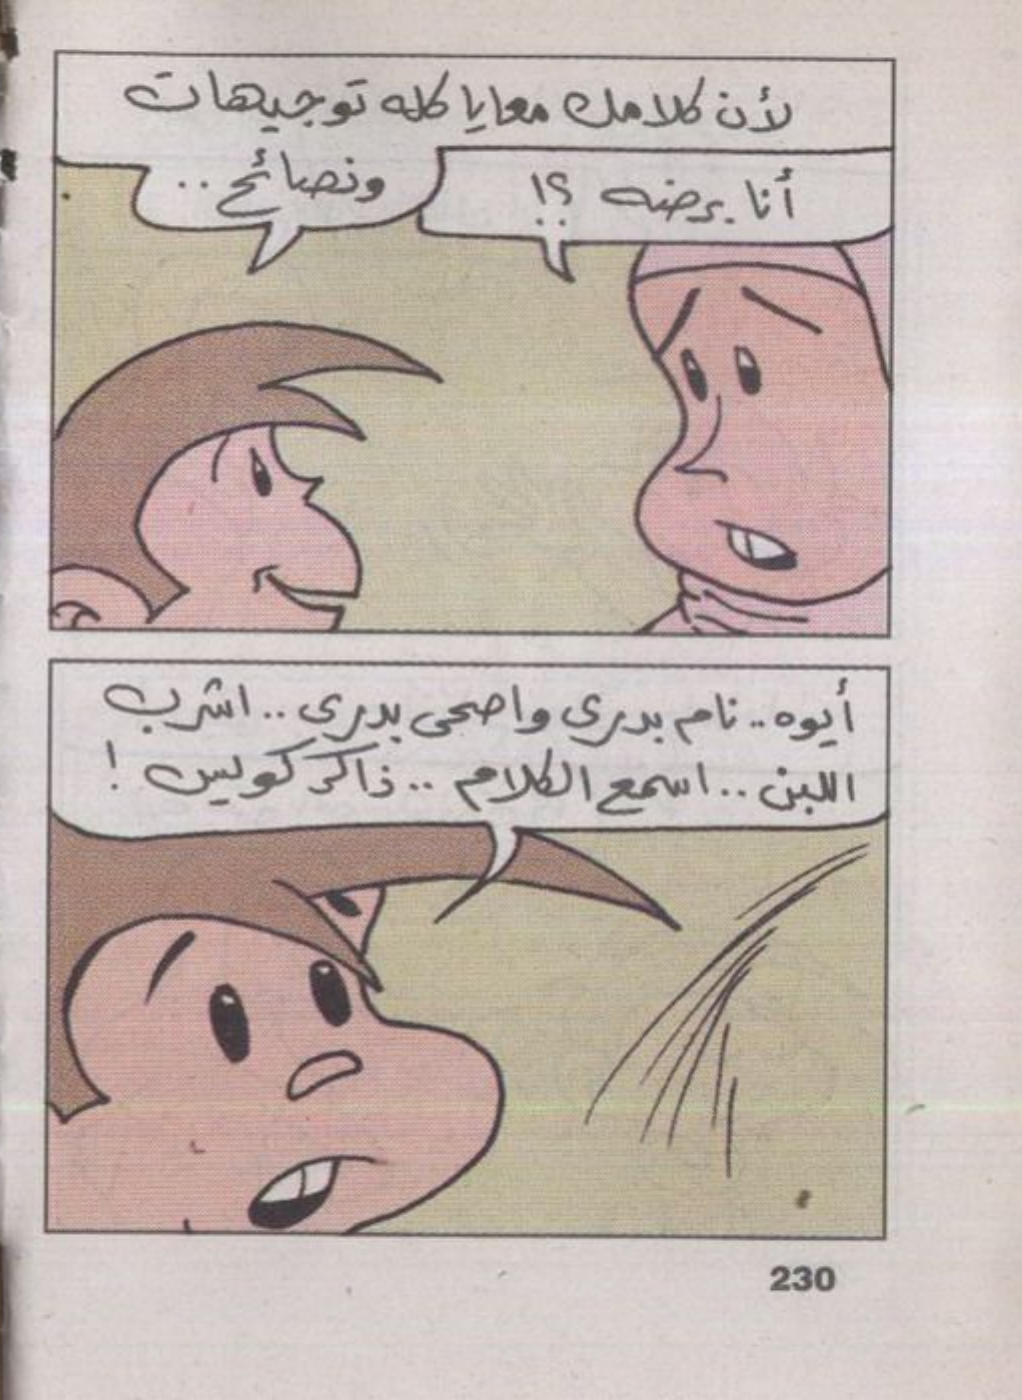 لأن كلامك معايا كله توجيهات
ونصائح ..
أنا برضه ؟!
أيوه .. نام بدرى واصحى بدرى .. اشرب
اللبن .. اسمع الكلام .. ذاكر كويس !
230